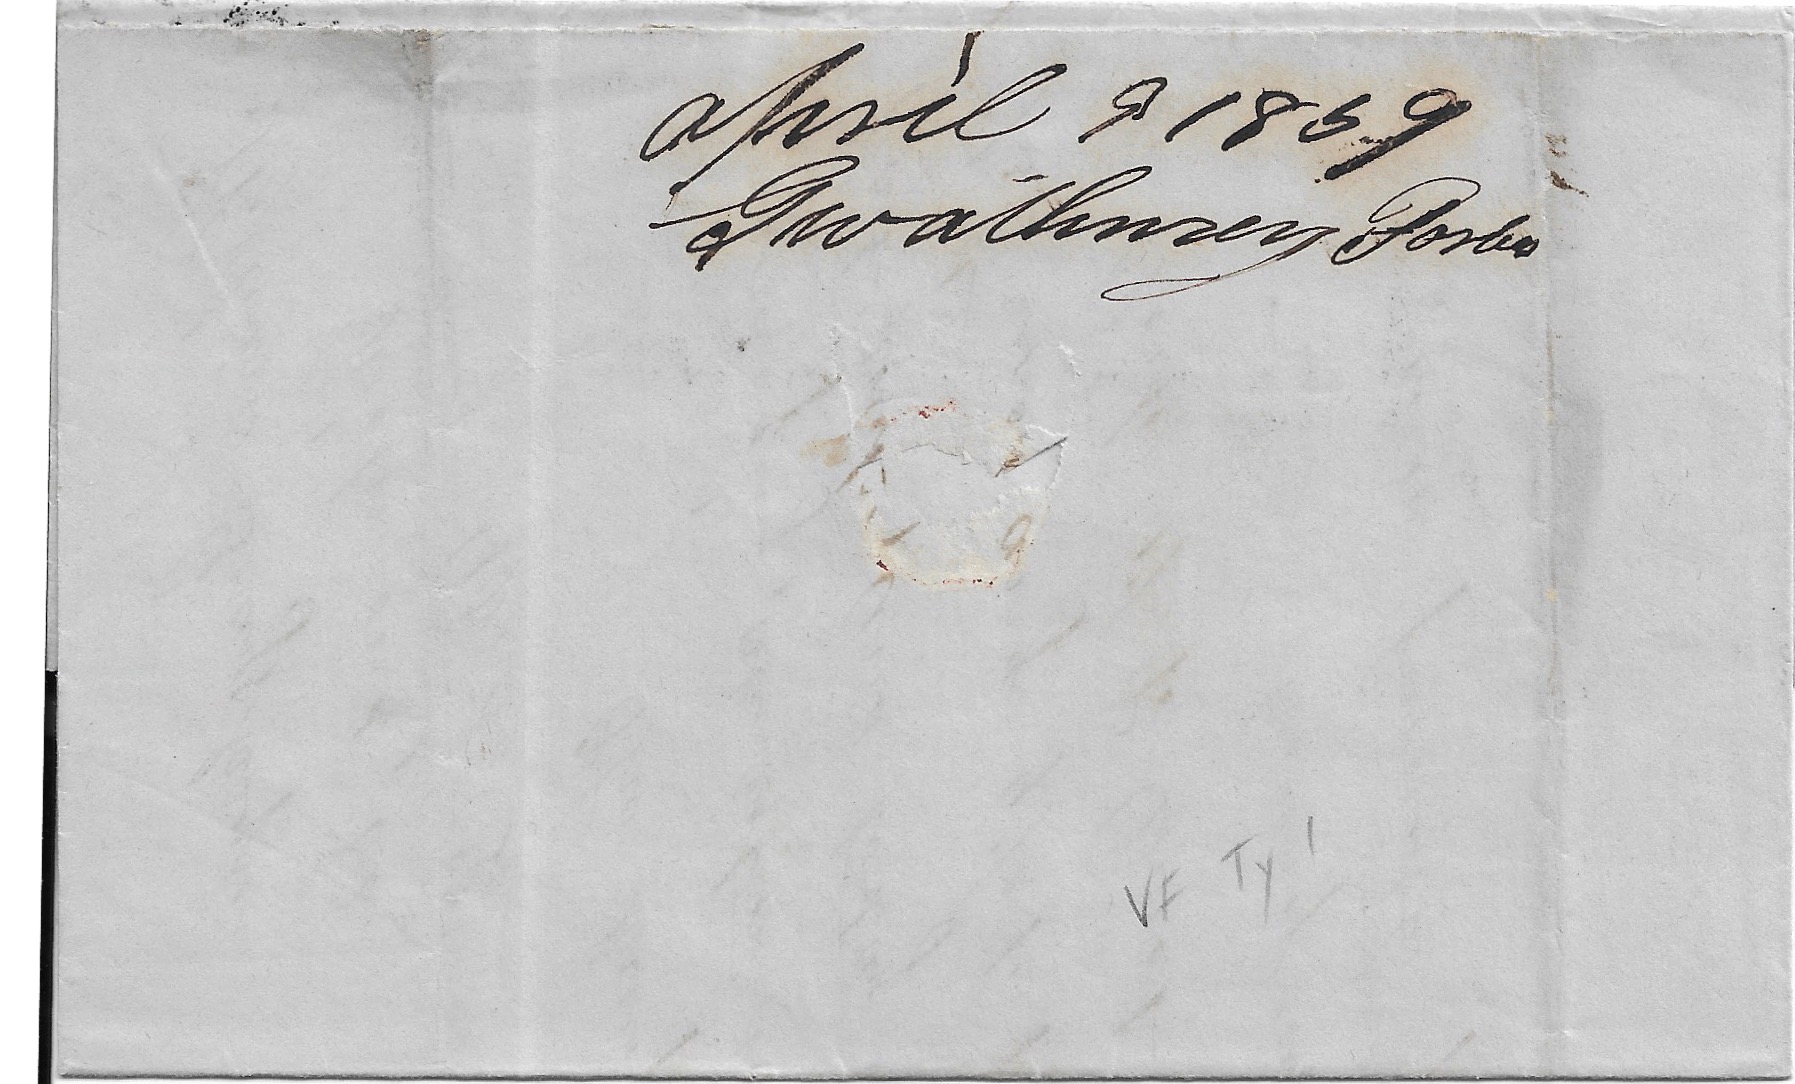 April 9 1859
Gwathmey Forbes
VF Ty 1